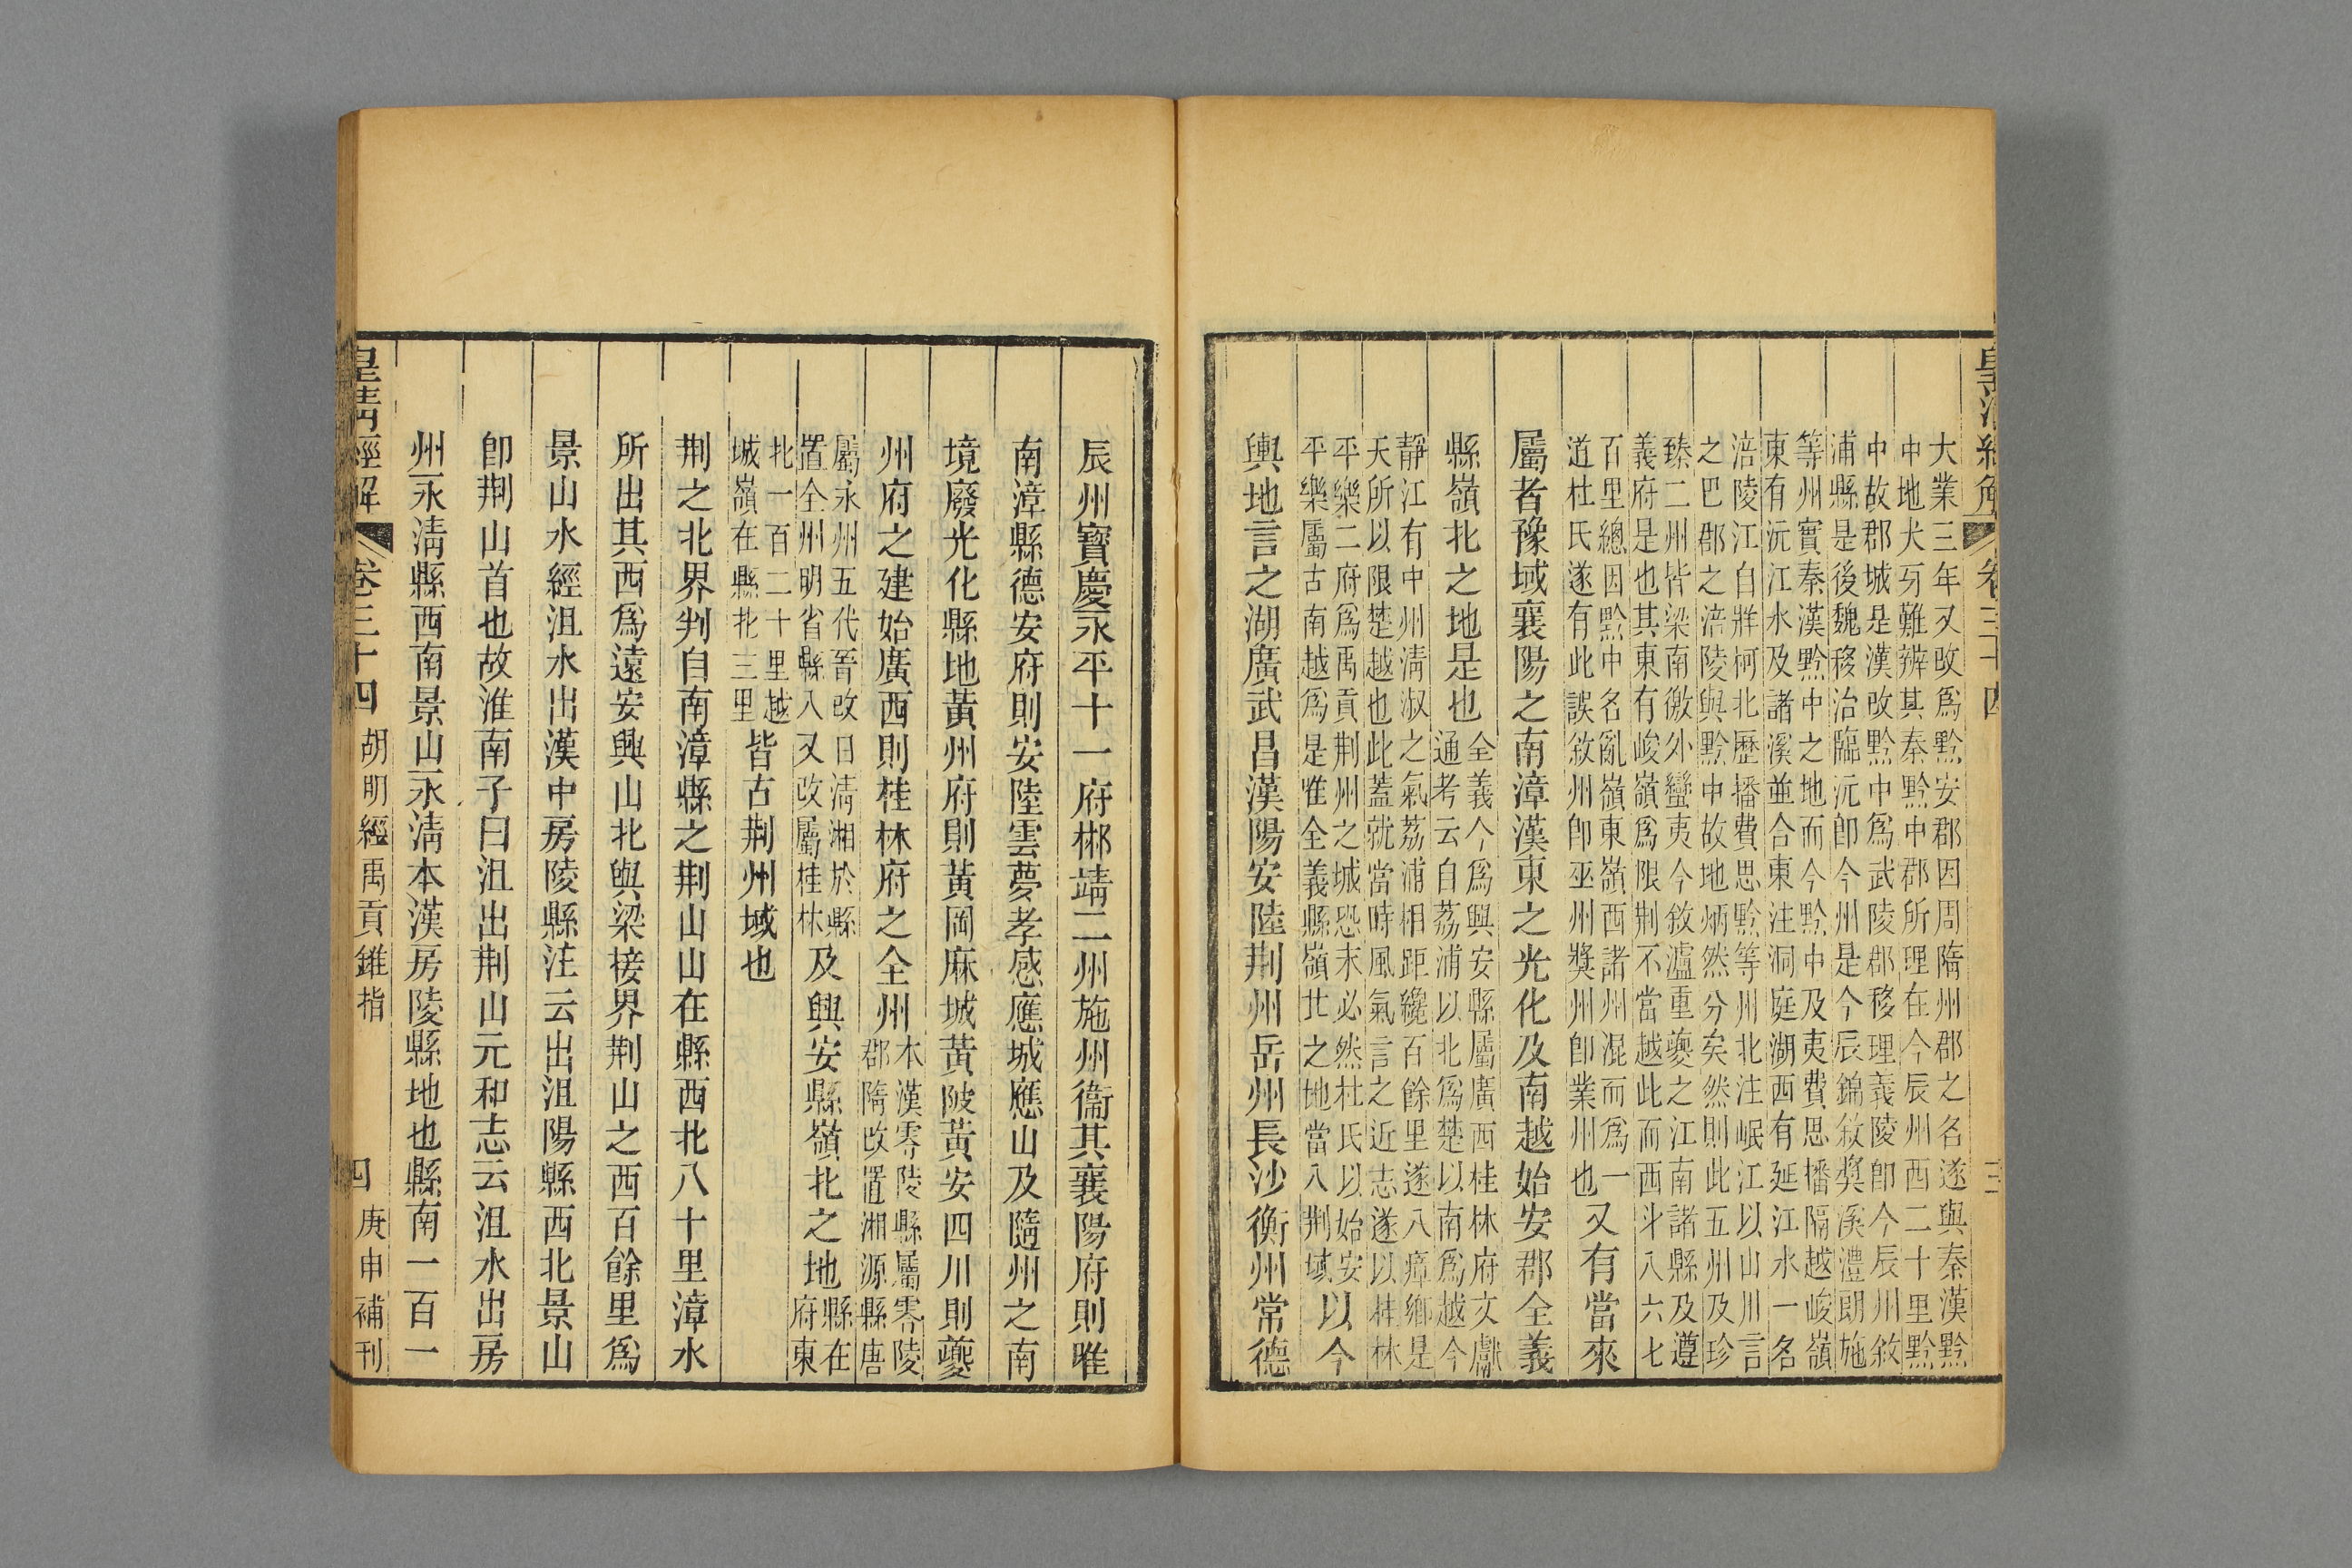 皇清經解 卷三十四 三
大業三年又改爲黔安郡因周隋州郡之名遂與秦漢黔
中地犬牙難辨其秦黔中郡所理在今辰州西二十里黔
中故郡城是漢改黔中爲武陵郡移理義陵卽今辰州敘
浦縣是後魏移治臨沅卽今州是今辰錦敘獎溪澧朗施
等州實秦漢黔中之地而今黔中及夷費思播隔越峻嶺
東有沅江水及諸溪並合東注洞庭湖西有延江水一名
涪陵江自牂柯北歷播費思黔等州北注岷江以山川言
之巴郡之涪陵與黔中故地炳然分矣然則此五州及珍
臻二州皆梁南徼外蠻夷今敘瀘重夔之江南諸縣及遵
義府是也其東有峻嶺爲限荆不當越此而西斗入六七
百里總因黔中名亂嶺東嶺西諸州混而爲一
道杜氏遂有此誤敘州卽巫州獎州卽業州也
又有當來
屬者豫域襄陽之南漳漢東之光化及南越始安郡全義
縣嶺北之地是也
全義今爲興安縣屬廣西桂林府文獻
通考云自荔浦以北爲楚以南爲越今
靜江有中州淸淑之氣荔浦相距纔百餘里遂入瘴鄉是
天所以限楚越也此蓋就當時風氣言之近志遂以桂林
平樂二府爲禹貢荆州之城恐未必然杜氏以始安
平樂屬古南越爲是惟全義縣嶺北之地當入荆域
以今
輿地言之湖廣武昌漢陽安陸荆州岳州長沙衡州常德
辰州寶慶永平十一府郴靖二州施州衞其襄陽府則唯
南漳縣德安府則安陸雲夢孝感應城應山及隨州之南
境廢光化縣地黃州府則黃岡麻城黃陂黃安四川則夔
州府之建始廣西則桂林府之全州
本漢零陵縣屬零陵
郡隋改置湘源縣唐
屬永州五代晉改曰淸湘於縣
置全州明省縣入又改屬桂林
及興安縣嶺北之地
縣在
府東
北一百二十里越
城嶺在縣北三里
皆古荆州域也
荆之北界判自南漳縣之荆山山在縣西北八十里漳水
所出其西爲遠安興山北與梁接界荆山之西百餘里爲
景山水經沮水出漢中房陵縣注云出沮陽縣西北景山
卽荆山首也故淮南子曰沮出荆山元和志云沮水出房
州永淸縣西南景山永淸本漢房陵縣地也縣南一百一
皇清經解 卷三十四 胡明經禹貢錐指 四 庚申補刊